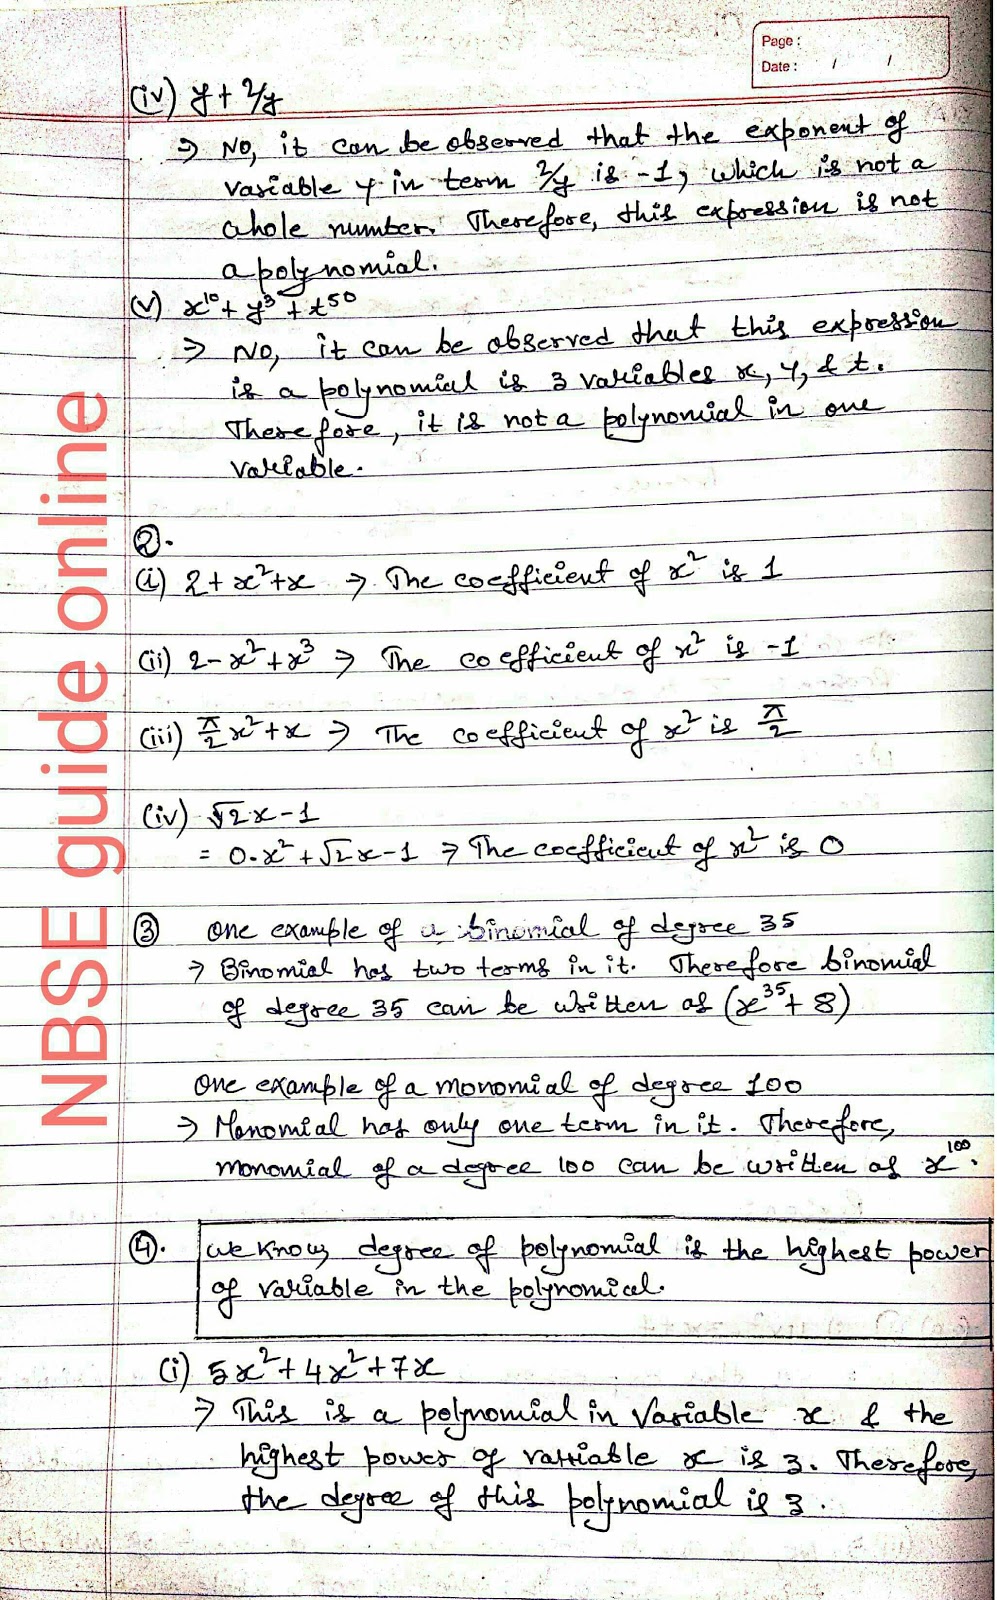 Page :
Date : / /
(iv) y + 2/y
⇒ No, it can be observed that the exponent of
variable y in term 2/y is -1, which is not a
whole number. Therefore, this expression is not
a polynomial.
(v) x¹⁰ + y³ + t⁵⁰
⇒ No, it can be observed that this expression
is a polynomial is 3 variables x, y, & t.
Therefore, it is not a polynomial in one
variable.
②.
(i) 2 + x² + x ⇒ The coefficient of x² is 1
(ii) 2 - x² + x³ ⇒ The coefficient of x² is -1
(iii) π/2 x² + x ⇒ The coefficient of x² is π/2
(iv) √2x - 1
= 0.x² + √2x - 1 ⇒ The coefficient of x² is 0
③ One example of a binomial of degree 35
⇒ Binomial has two terms in it. Therefore binomial
of degree 35 can be written as (x³⁵ + 8)
One example of a monomial of degree 100
⇒ Monomial has only one term in it. Therefore,
monomial of a degree 100 can be written as x¹⁰⁰.
④. We know, degree of polynomial is the highest power
of variable in the polynomial.
(i) 5x² + 4x² + 7x
⇒ This is a polynomial in variable x & the
highest power of variable x is 3. Therefore,
the degree of this polynomial is 3.
NBSE guide online